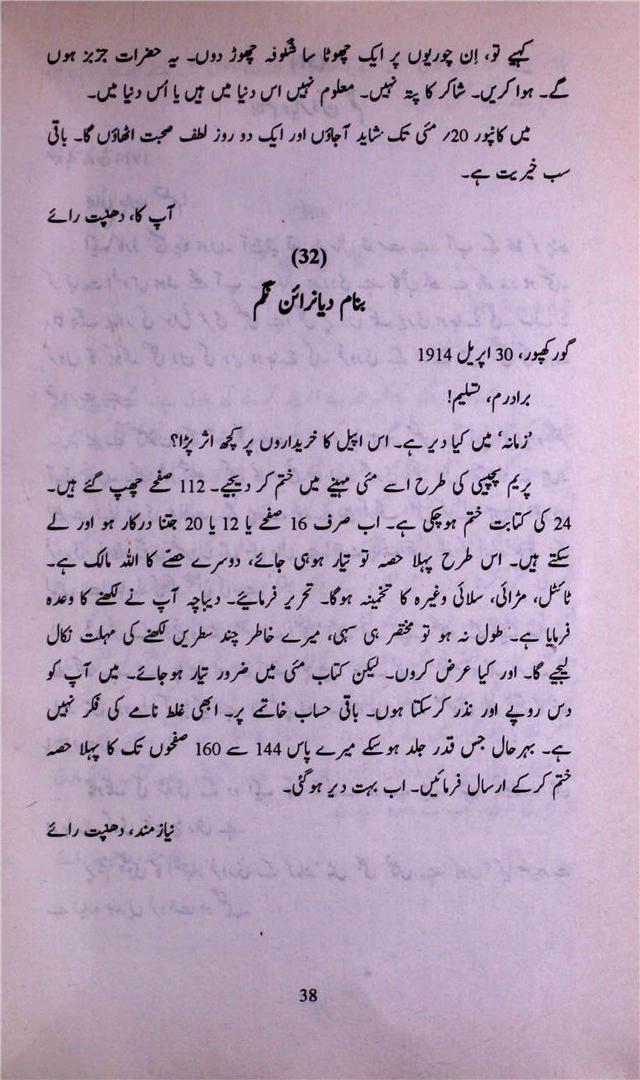 کہیے تو، اِن چوریوں پر ایک چھوٹا سا شگوفہ چھوڑ دوں۔ یہ حضرات جزبز ہوں
گے۔ ہوا کریں۔ شاکر کا پتہ نہیں۔ معلوم نہیں اس دنیا میں ہیں یا اُس دنیا میں۔
میں کانپور 20؍ مئی تک شاید آجاؤں اور ایک دو روز لطف صحبت اٹھاؤں گا۔ باقی
سب خیریت ہے۔
آپ کا، دھنپت رائے
(32)
بنام دیانرائن نگم
گورکھپور، 30 اپریل 1914
برادرم، تسلیم!
’زمانہ‘ میں کیا دیر ہے۔ اس اپیل کا خریداروں پر کچھ اثر پڑا؟
پریم پچیسی کی طرح اسے مئی مہینے میں ختم کر دیجیے۔ 112 صفحے چھپ گئے ہیں۔
24 کی کتابت ختم ہوچکی ہے۔ اب صرف 16 صفحے یا 12 یا 20 جتنا درکار ہو اور لے
سکتے ہیں۔ اس طرح پہلا حصہ تو تیار ہو ہی جائے، دوسرے حصّے کا اللہ مالک ہے۔
ٹائٹل، مڑائی، سلائی وغیرہ کا تخمینہ ہوگا۔ تحریر فرمائیے۔ دیباچہ آپ نے لکھنے کا وعدہ
فرمایا ہے۔ طول نہ ہو تو مختصر ہی سہی، میرے خاطر چند سطریں لکھنے کی مہلت نکال
لیجیے گا۔ اور کیا عرض کروں۔ لیکن کتاب مئی میں ضرور تیار ہوجائے۔ میں آپ کو
دس روپے اور نذر کرسکتا ہوں۔ باقی حساب خاتمے پر۔ ابھی غلط نامے کی فکر نہیں
ہے۔ بہرحال جس قدر جلد ہوسکے میرے پاس 144 سے 160 صفحوں تک کا پہلا حصہ
ختم کرکے ارسال فرمائیں۔ اب بہت دیر ہوگئی۔
نیازمند، دھنپت رائے
38